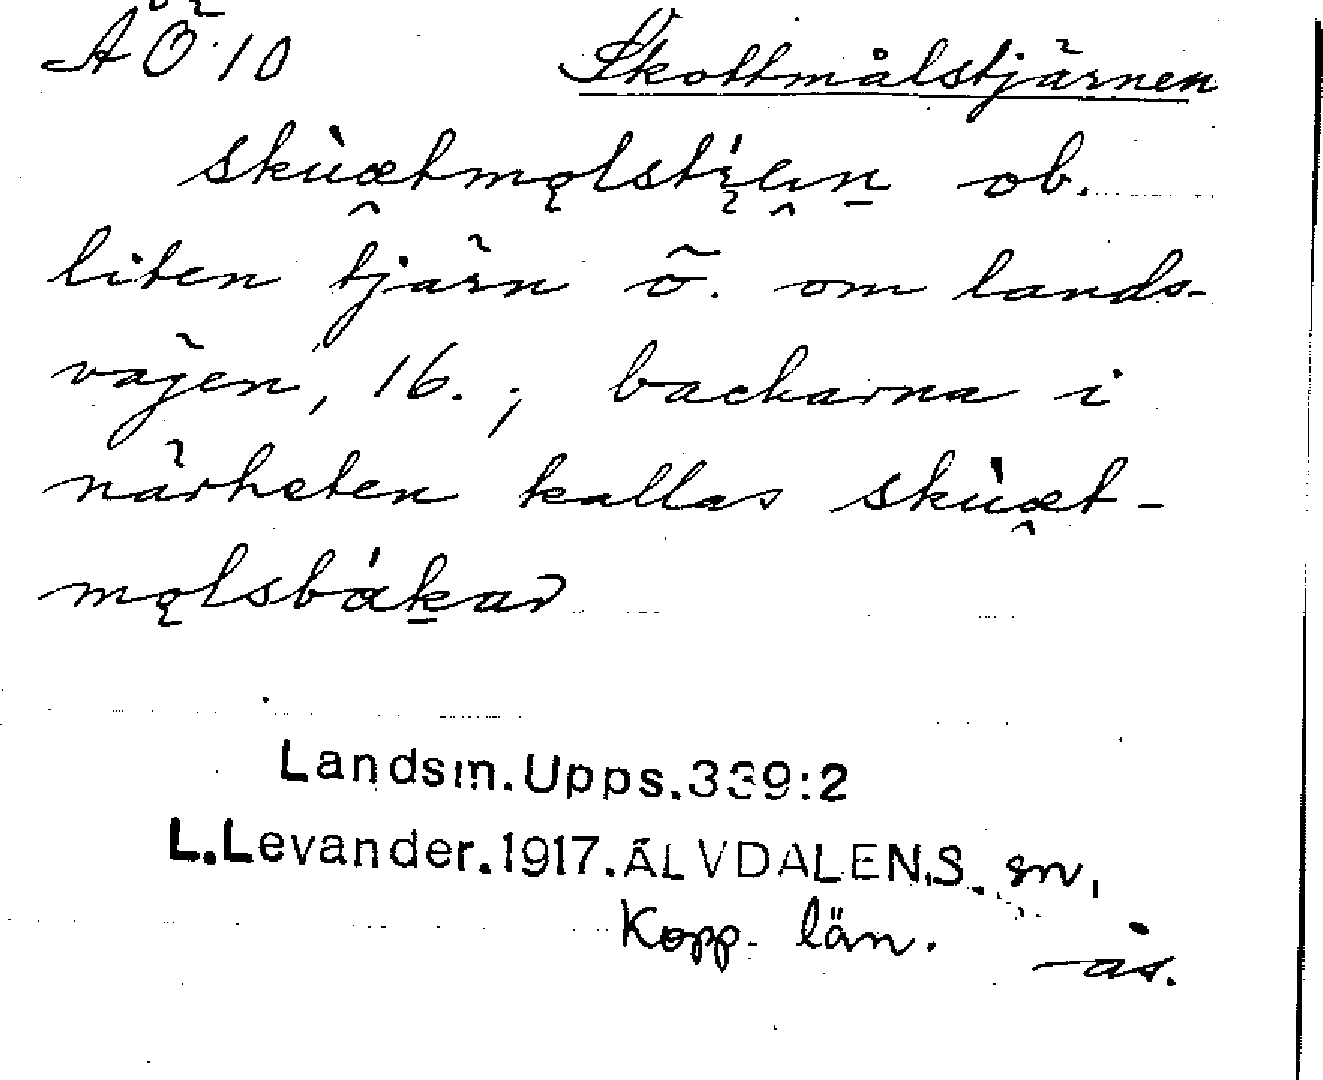 ÄÖ 10 Skottmålstjärnen
skùœ̯tmǫlstį́e̯n̲ ob.
liten tjärn ö. om lands-
vägen, 16.; backarna i
närheten kallas skùœ̯t-
mǫlsbák̲ar
Landsm.Upps.339:2
L.Levander.1917.ÄLVDALEN.S. sn.
Kopp. län.
-ås.